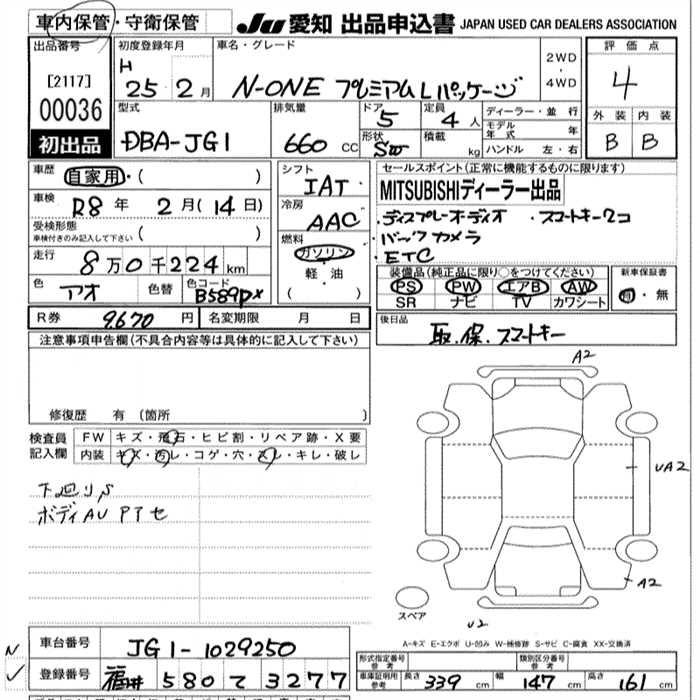 車内保管・守衛保管
JU 愛知 出品申込書 JAPAN USED CAR DEALERS ASSOCIATION
出品番号
[2117]
00036
初出品
初度登録年月
H
25 2月
車名・グレード
N-ONE プレミアムLパッケージ
2WD
・
4WD
評価点
4
外装 内装
B B
型式
DBA-JG1
排気量
660 CC
ドア
5
定員
4人
形状
SW
積載
kg
ディーラー・並行
モデル年式 年
ハンドル 左・右
車歴
自家用・( )
車検
R8年 2月(14日)
受検形態
車検付きのみ記入して下さい ( )
走行
8万0千224km
色
アオ
色替
色コード
B589P
シフト
IAT
冷房
AAC
燃料
ガソリン
軽・油
( )
セールスポイント(正常に機能するものに限ります)
MITSUBISHIディーラー出品
・ディスプレーオーディオ ・スマートキー2コ
・バックカメラ
・ETC
装備品(純正品に限り○をつけてください)
PS PW エアB AW
SR ナビ TV カワシート
新車保証書
有・無
R券 9670円
名変期限 月 日
後日品
取.保.スマートキー
注意事項申告欄(不具合内容等は具体的に記入して下さい)
修復歴 有(箇所 )
検査員
記入欄
FW キズ・飛石・ヒビ割・リペア跡・X要
内装 キズ・汚レ・コゲ・穴・スレ・キレ・破レ
下廻りS
ボディAU PTセ
A2
UA2
A2
U2
スペア
A-キズ E-エクボ U-凹み W-補修跡 S-サビ C-腐食 XX-交換済
車台番号
JG1-1029250
登録番号
福井 580 て 3277
形式指定番号
参考
類別区分番号
参考
車庫証明用
参考
長さ 339 cm
幅 147 cm
高さ 161 cm